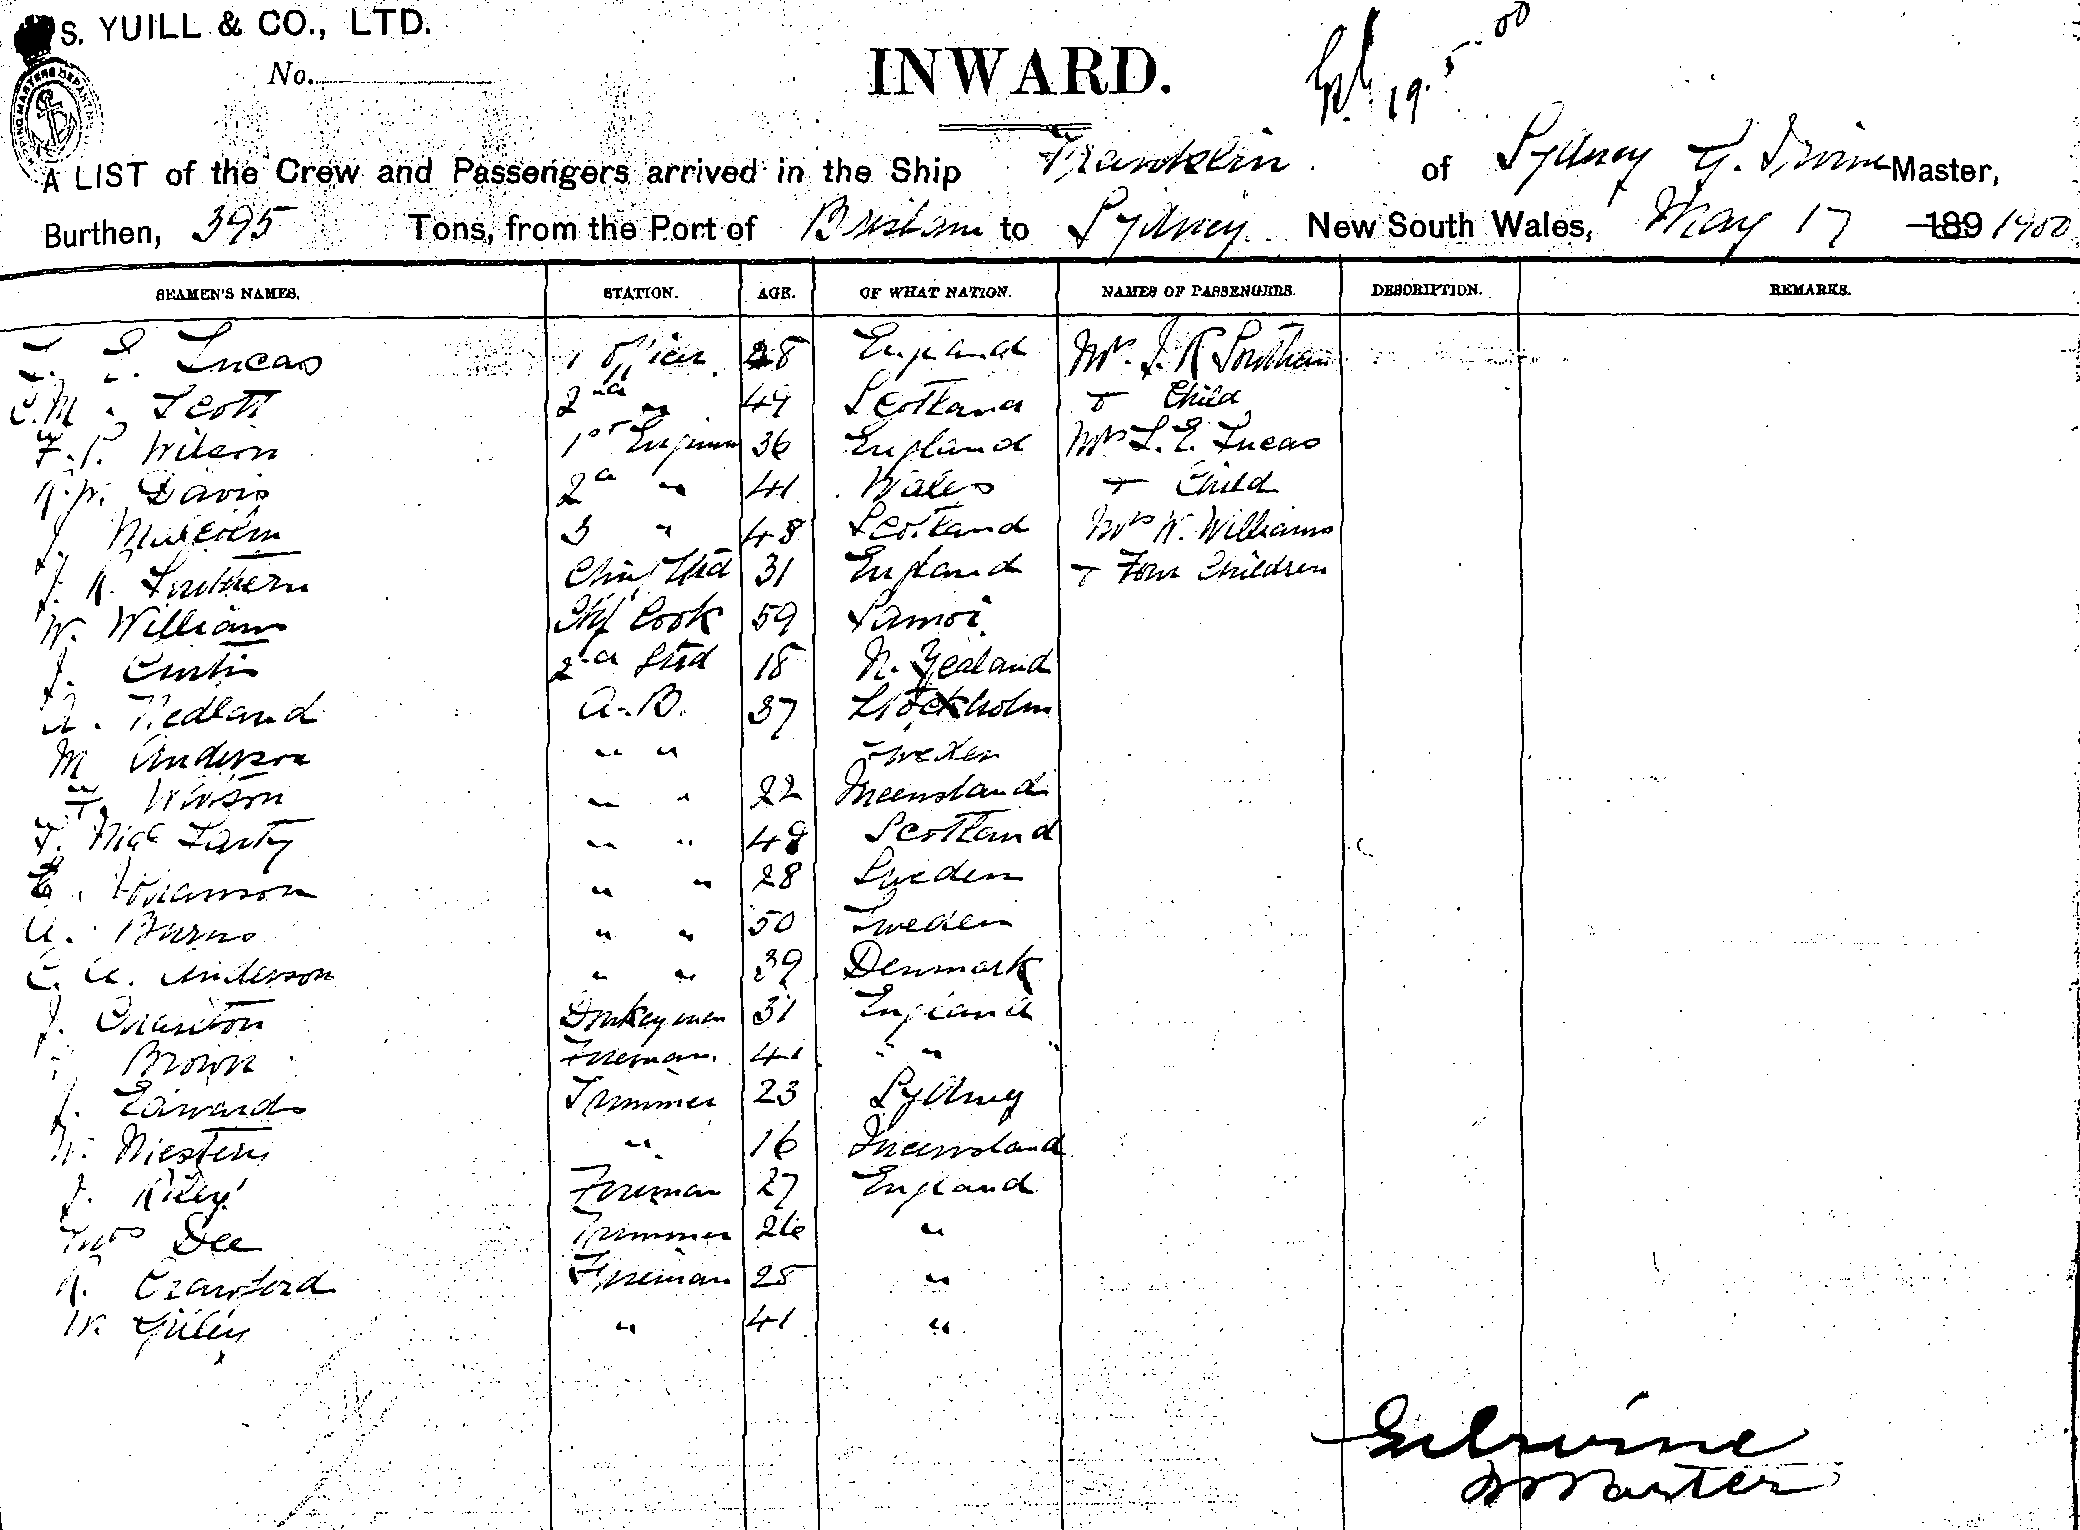 S. YUILL & CO., LTD.
No.
INWARD.
19.5.00
A LIST of the Crew and Passengers arrived in the Ship Franklin of Sydney G. Irvine Master,
Burthen, 395 Tons, from the Port of Brisbane to Sydney New South Wales, May 17 189 1900
SEAMEN'S NAMES. STATION. AGE. OF WHAT NATION. NAMES OF PASSENGERS. DESCRIPTION. REMARKS.
L. E. Lucas 1 Officer 28 England Mrs. J. R Southern
C. M. Scott 2nd " 49 Scotland + Child
F. P. Wilson 1st Engineer 36 England Mrs L. E. Lucas
R. W. Davis 2d " 41 Wales + Child
J. Malcolm 3 " 48 Scotland Mrs W. Williams
J. R. Southern Chief Std 31 England + Four Children
W. Williams Chf Cook 59 Samoi
J. Curtis 2nd Std 18 N. Zealand
A. Hedland A. B. 37 Stockholm
M Anderson " " Sweden
T. Wilson " " 22 Queensland
F. MacLarty " " 48 Scotland
E. Johanson " " 28 Sweden
A. Burns " " 50 Sweden
C. A. Anderson " " 39 Denmark
J. Cranston Donkeyman 31 England
Brown Fireman 41 " "
J. Edwards Trimmer 23 Sydney
W. " 16 Queensland
J. Riley Fireman 27 England
Thos Dee Trimmer 26 "
R. Crawford Fireman 28 "
W. " 41 "
G Irvine
Master